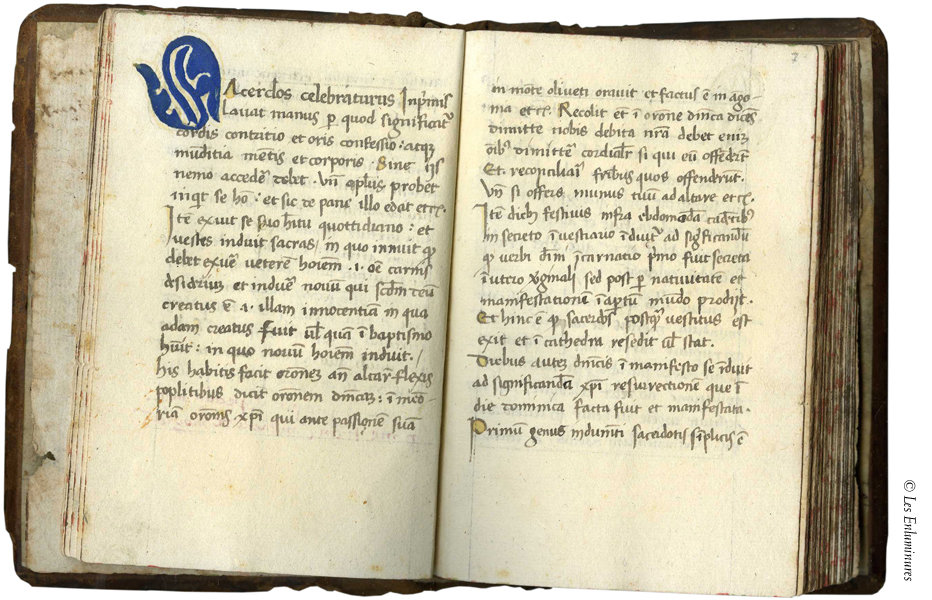 Sacerdos celebraturus Inprimis
lavat manus p quod significat
cordis contritio et oris confessio : atq
mūditia mētis et corporis . Sine ijs
nemo accedē debet . Vn̄ apl̄us probet
inqit se hō : et sic de pane illo edat etc.
Itē exuit se suo hītu quottidiano : et
vestes induit sacras / in quo innuit qp
debet exuē veterē hoīem . i . oē carnis
desiderium et induē novū qui scdm deū
creatus ē . i . illam innocentiam in qua
adam creatus fuit ul̄ quā ī baptismo
hūit : in quo novū hoīem induit . /
his habitis facit orōnez an̄ altar flexis
poplitibus dicit orōnem dn̄icaz : ī mēo
ria orōnis xpī qui ante passionē suā
7
in mōte oliveti oravit et factus ē in ago
nia etc. Recolit et̄ ī orone dnīca dicēs
dimitte nobis debita nrā debet enim
oībꝰ dimittē cordialr si qui eū offēderīt
Et reconciliari fribus quos offenderit .
Vn̄ si offers munus tuū ad altare etc.
Itē dieb festivis infra ebdomada cadētibꝰ
in secreto ī vestiario īduitᷣ ad sigficandū
qp verbi dīni īcarnatio prīmo fuit secreta
ī utero virginali sed post p nativitatē et
manifestationē ī aptū mūdo prodijt .
Et hinc ē qp sacerdos postqp vestitus est
exit et ī cathedra resedit ul̄ stat .
Diebus autez dnīcis ī manifesto se īduit
ad significandā xpī resurrectionē que ī
die dominica facta fuit et manifestata .
Primū genus indumēti sacerdotis simplicis ē
© Les Enluminures